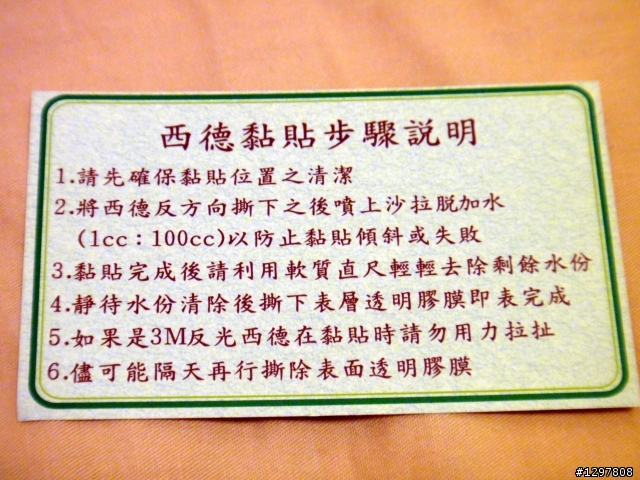 西德黏貼步驟説明
1.請先確保黏貼位置之清潔
2.將西德反方向撕下之後噴上沙拉脱加水
(1cc：100cc)以防止黏貼傾斜或失敗
3.黏貼完成後請利用軟質直尺輕輕去除剩餘水份
4.靜待水份清除後撕下表層透明膠膜即表完成
5.如果是3M反光西德在黏貼時請勿用力拉扯
6.儘可能隔天再行撕除表面透明膠膜
#1297808